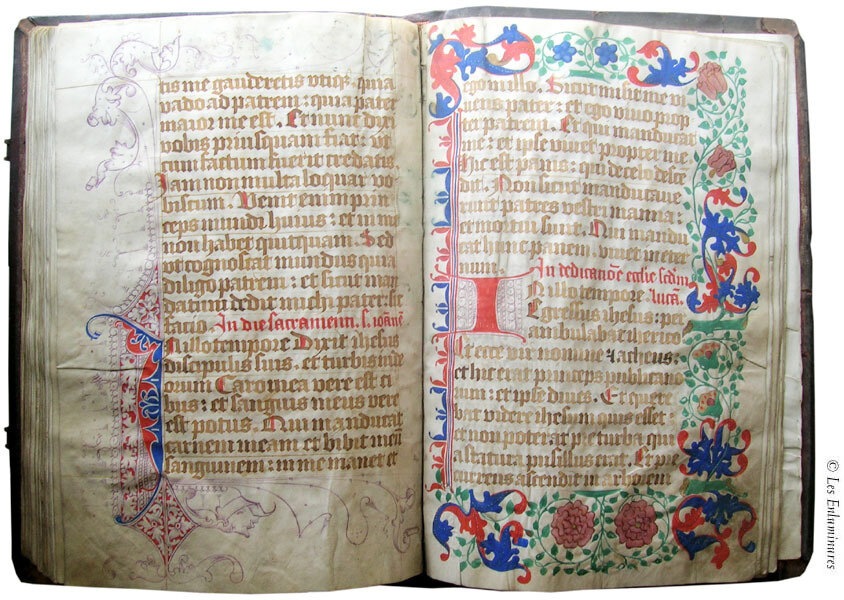 tis me gauderetis utiq; quia
vado ad patrem: quia pater
maior me est. Et nunc dixi
vobis priusquam fiat: ut
cum factum fuerit credatis.
Iam non multa loquar vo
biscum. Venit enim prin
ceps mundi huius: et in me
non habet quitquam. Sed
ut cognoscat mundus quia
diligo patrem: et sicut man
datum dedit michi pater: sic
facio. In die sacramenti. s. ioãnẽ.
In illo tempore Dixit ihesus
discipulis suis, et turbis iude
orum Caro mea vere est ci
bus: et sanguis meus vere
est potus. Qui manducat
carnem meam et bibit meũ
sanguinem: in me manet et
ego in illo. Sicut misit me vi
vens pater: et ego vivo prop
ter patrem. Et qui manducat
me: et ipse vivet propter me
Hic est panis: qui de celo desce
dit. Non sicut manducave
runt patres vestri manna:
et mortui sunt. Qui mandu
cat hunc panem: vivet in eter
num. In dedicatiõe ecclie secdm
lucã.
In illo tempore.
Egressus ihesus: per
ambulabat iherico
Et ecce vir nomine zacheus:
et hic erat princeps publicano
rum: et ipse dives. Et quere
bat videre ihesum quis esset:
et non poterat pre turba qui
a statura pusillus erat. Et pre
currens ascendit in arborem
© Les Enluminures